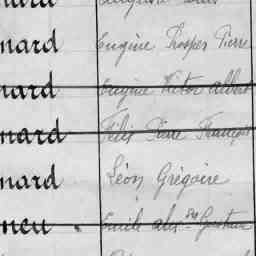 nard Eugène Prosper Pierre
nard Eugène Victor Albert
nard Félix Pierre François
nard Léon Grégoire
neu Emile Alex.dre Gustave